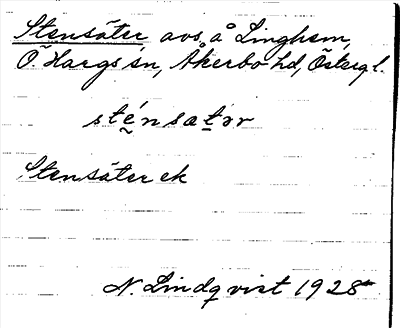 Stensäter, avs. å Linghem,
Ö. Hargs sn, Åkerbo hd, Östergl.
sténsatər
Stensäter ek
N. Lindqvist 1928